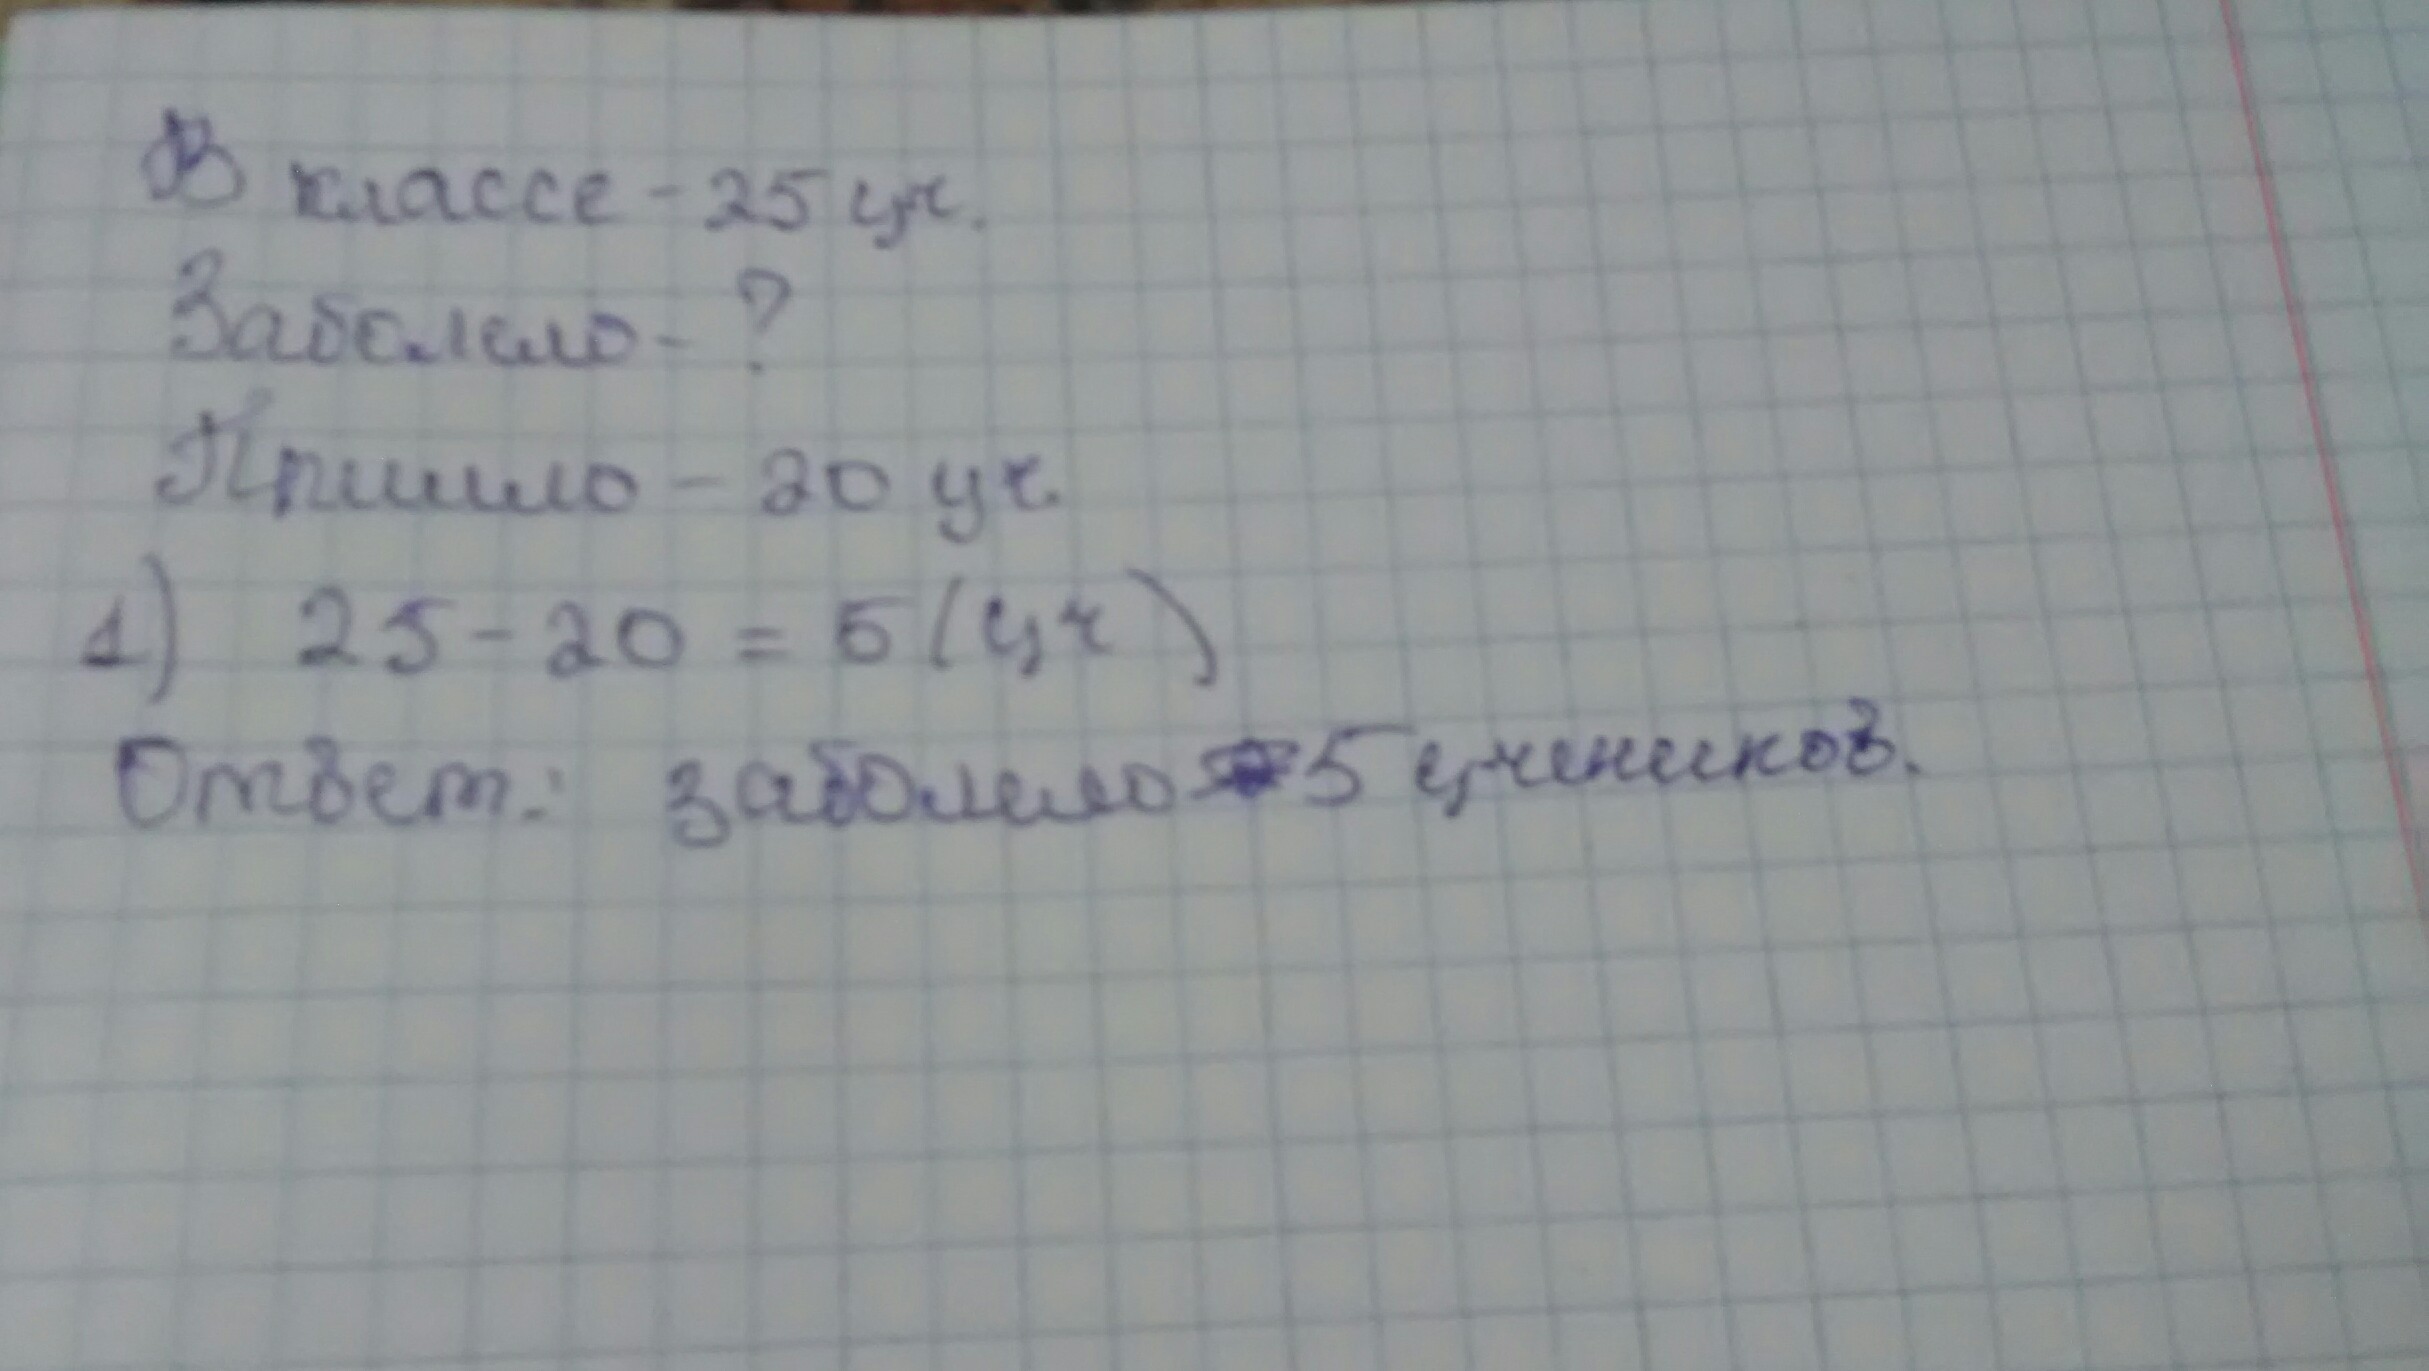 В классе - 25 уч.
Заболело - ?
Пришло - 20 уч.
1) 25 - 20 = 5 (уч)
Ответ: заболело 5 учеников.